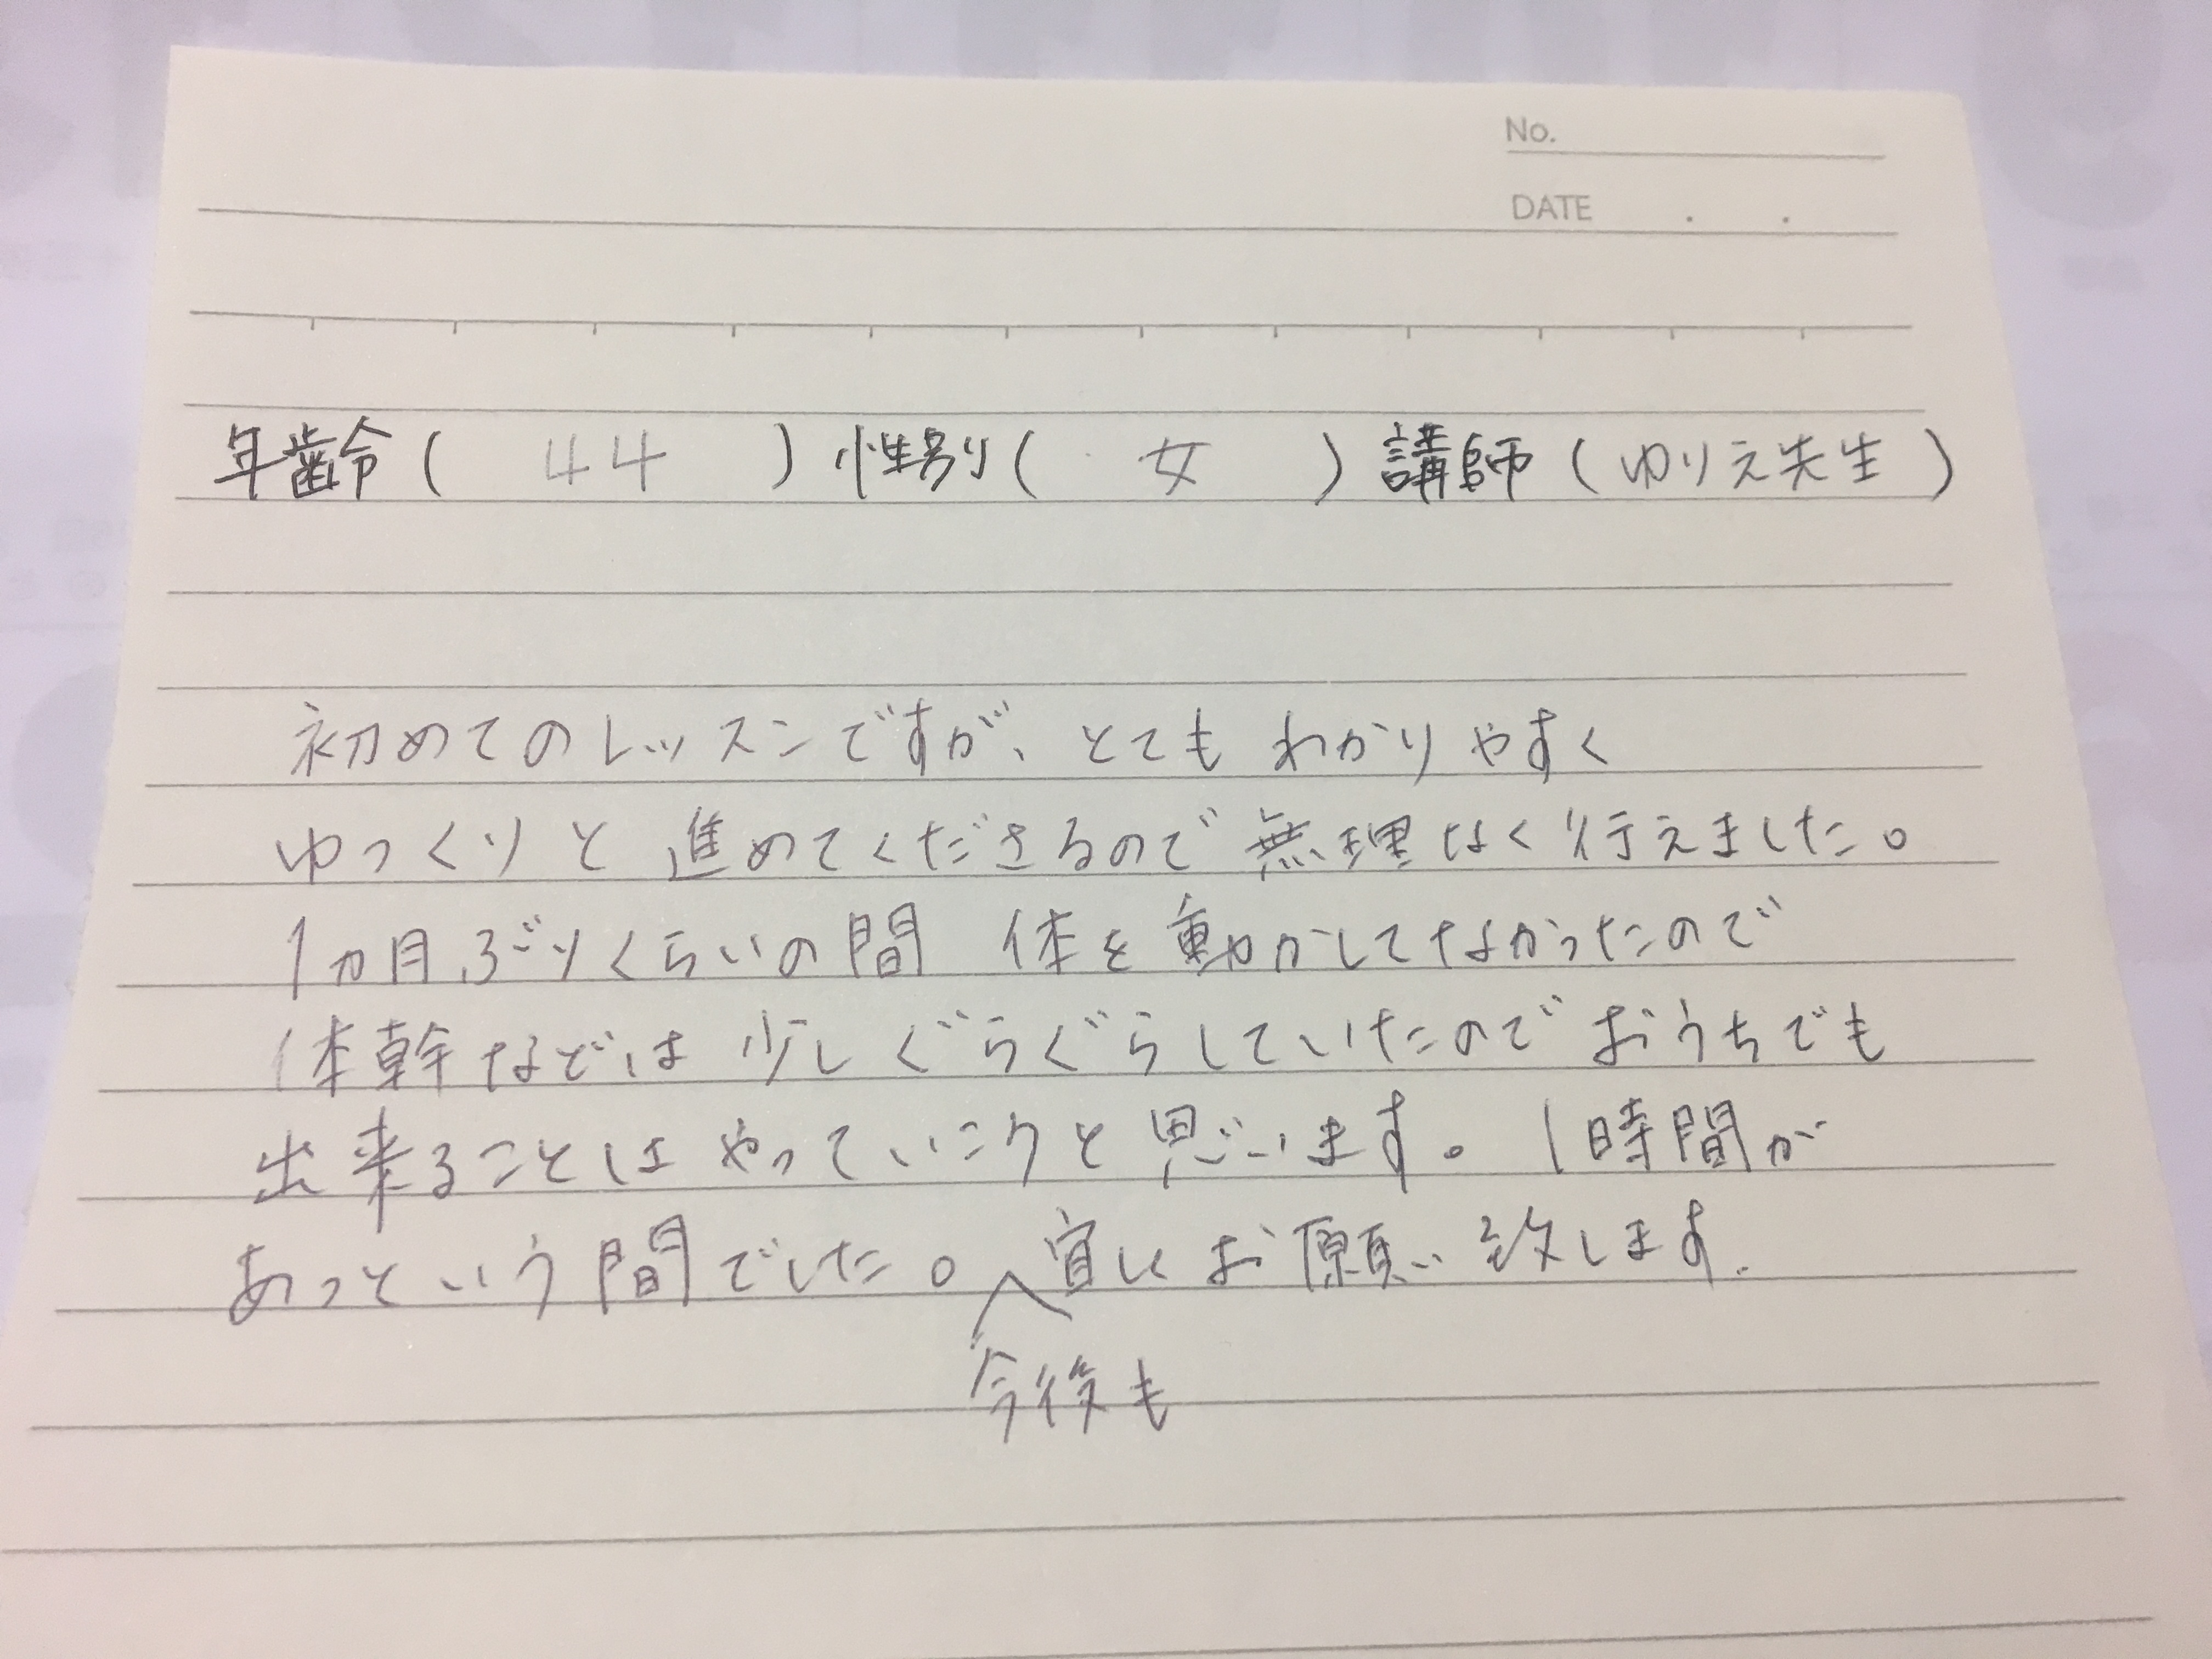 No.
DATE . .
年齢( 44 )性別( 女 )講師(ゆりえ先生)
初めてのレッスンですが、とてもわかりやすく
ゆっくりと進めてくださるので無理なく行えました。
1ヵ月ぶりくらいの間 体を動かしてなかったので
体幹などは少しぐらぐらしていたのでおうちでも
出来ることはやっていこうと思います。1時間が
あっという間でした。宜しくお願い致します.
今後も